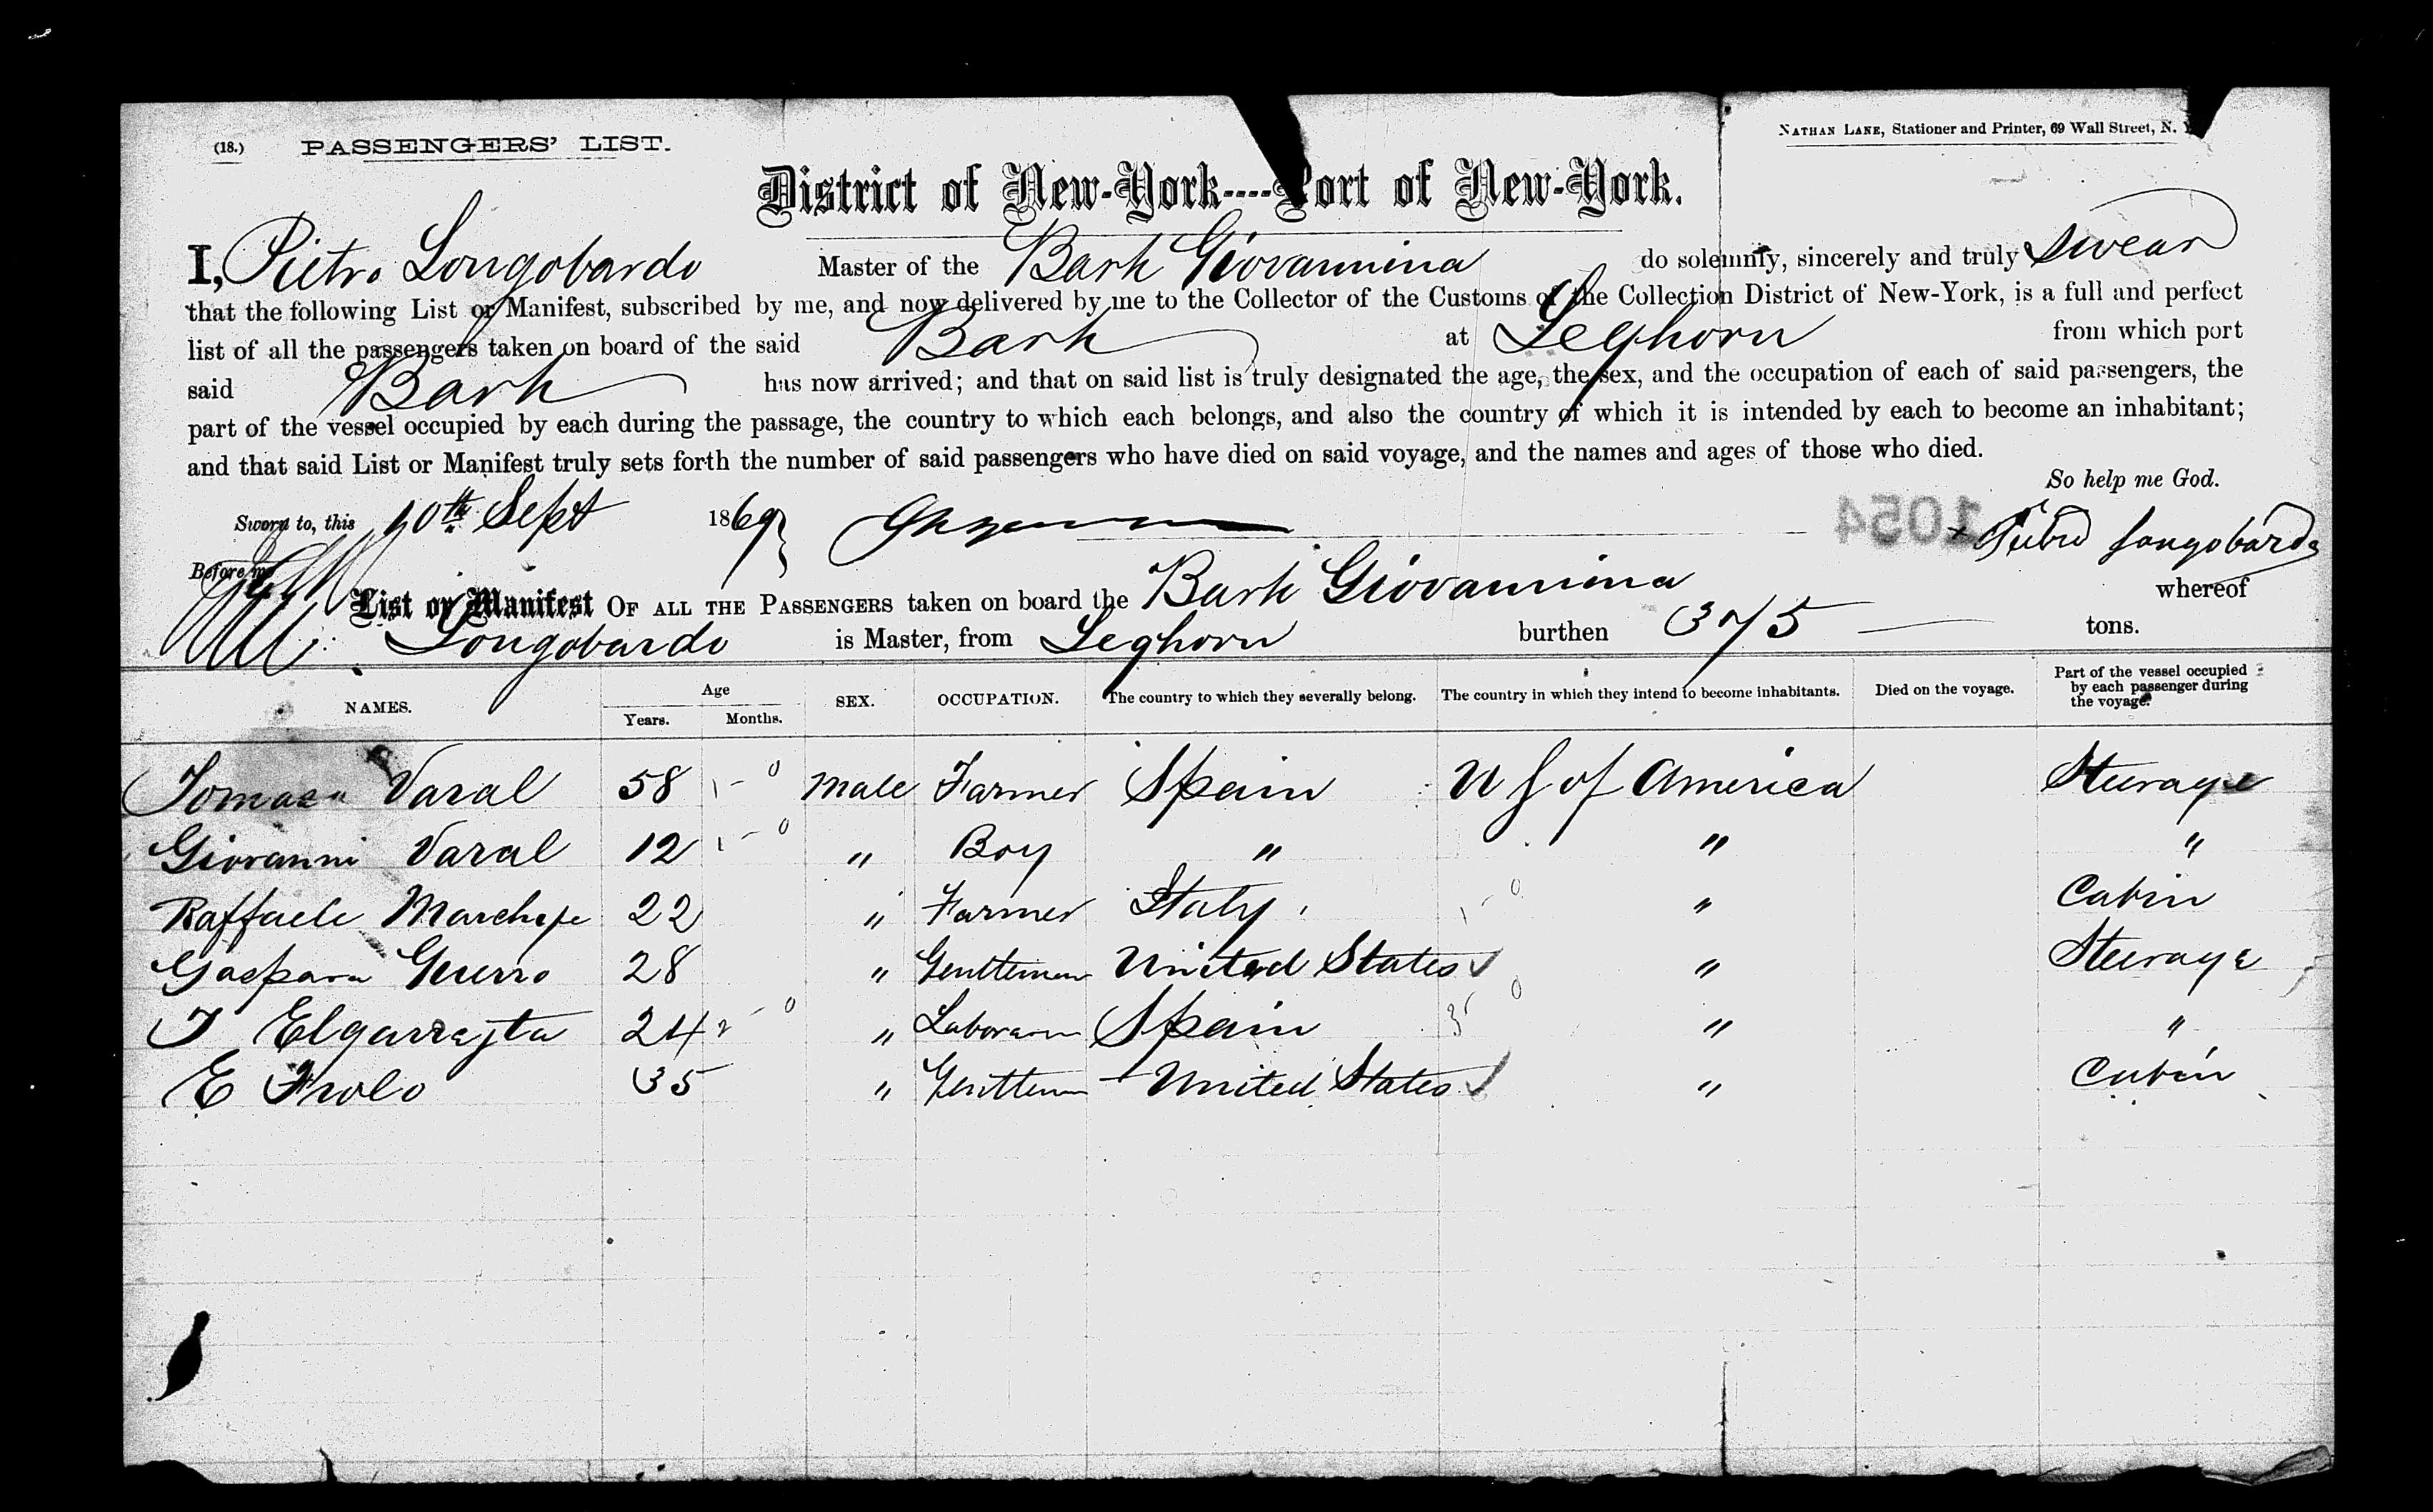 (18.) PASSENGERS' LIST.
NATHAN LANE, Stationer and Printer, 69 Wall Street, N.
District of New-York----Port of New-York.
I, Pietro Longobardo Master of the Bark Giovannina do solemnly, sincerely and truly swear
that the following List or Manifest, subscribed by me, and now delivered by me to the Collector of the Customs of the Collection District of New-York, is a full and perfect
list of all the passengers taken on board of the said Bark at Leghorn from which port
said Bark has now arrived; and that on said list is truly designated the age, the sex, and the occupation of each of said passengers, the
part of the vessel occupied by each during the passage, the country to which each belongs, and also the country of which it is intended by each to become an inhabitant;
and that said List or Manifest truly sets forth the number of said passengers who have died on said voyage, and the names and ages of those who died.
So help me God.
Sworn to, this 10th Sept 1869
1054
Pietro Longobardo
Before me
List or Manifest OF ALL THE PASSENGERS taken on board the Bark Giovannina whereof
Longobardo is Master, from Leghorn burthen 375 tons.
NAMES. Age Years. Months. SEX. OCCUPATION. The country to which they severally belong. The country in which they intend to become inhabitants. Died on the voyage. Part of the vessel occupied by each passenger during the voyage.
Tomaso Varal 58 Male Farmer Spain U S of America Steerage
Giovanni Varal 12 " Boy " " "
Raffaele 22 " Farmer Italy " Cabin
Gaspara Guerro 28 " Gentleman United States " Steerage
24 " Spain " "
E 35 " Gentleman United States " Cabin